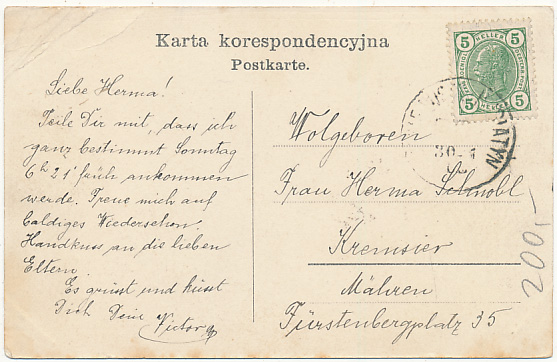 Karta korespondencyjna
Postkarte.
5 HELLER 5
5 HELLER 5
ATYN
30
Liebe Herma!
Teile Dir mit, dass ich
ganz bestimmt Sonntag
6h 21' früh ankommen
werde. Freue mich auf
baldiges Wiedersehen.
Handkuss an die lieben
Eltern.
Es grüsst und küsst
Dich Dein Victor
Wolgeboren
Frau Herma
Kremsier
Mähren
Fürstenbergplatz 35
200,-